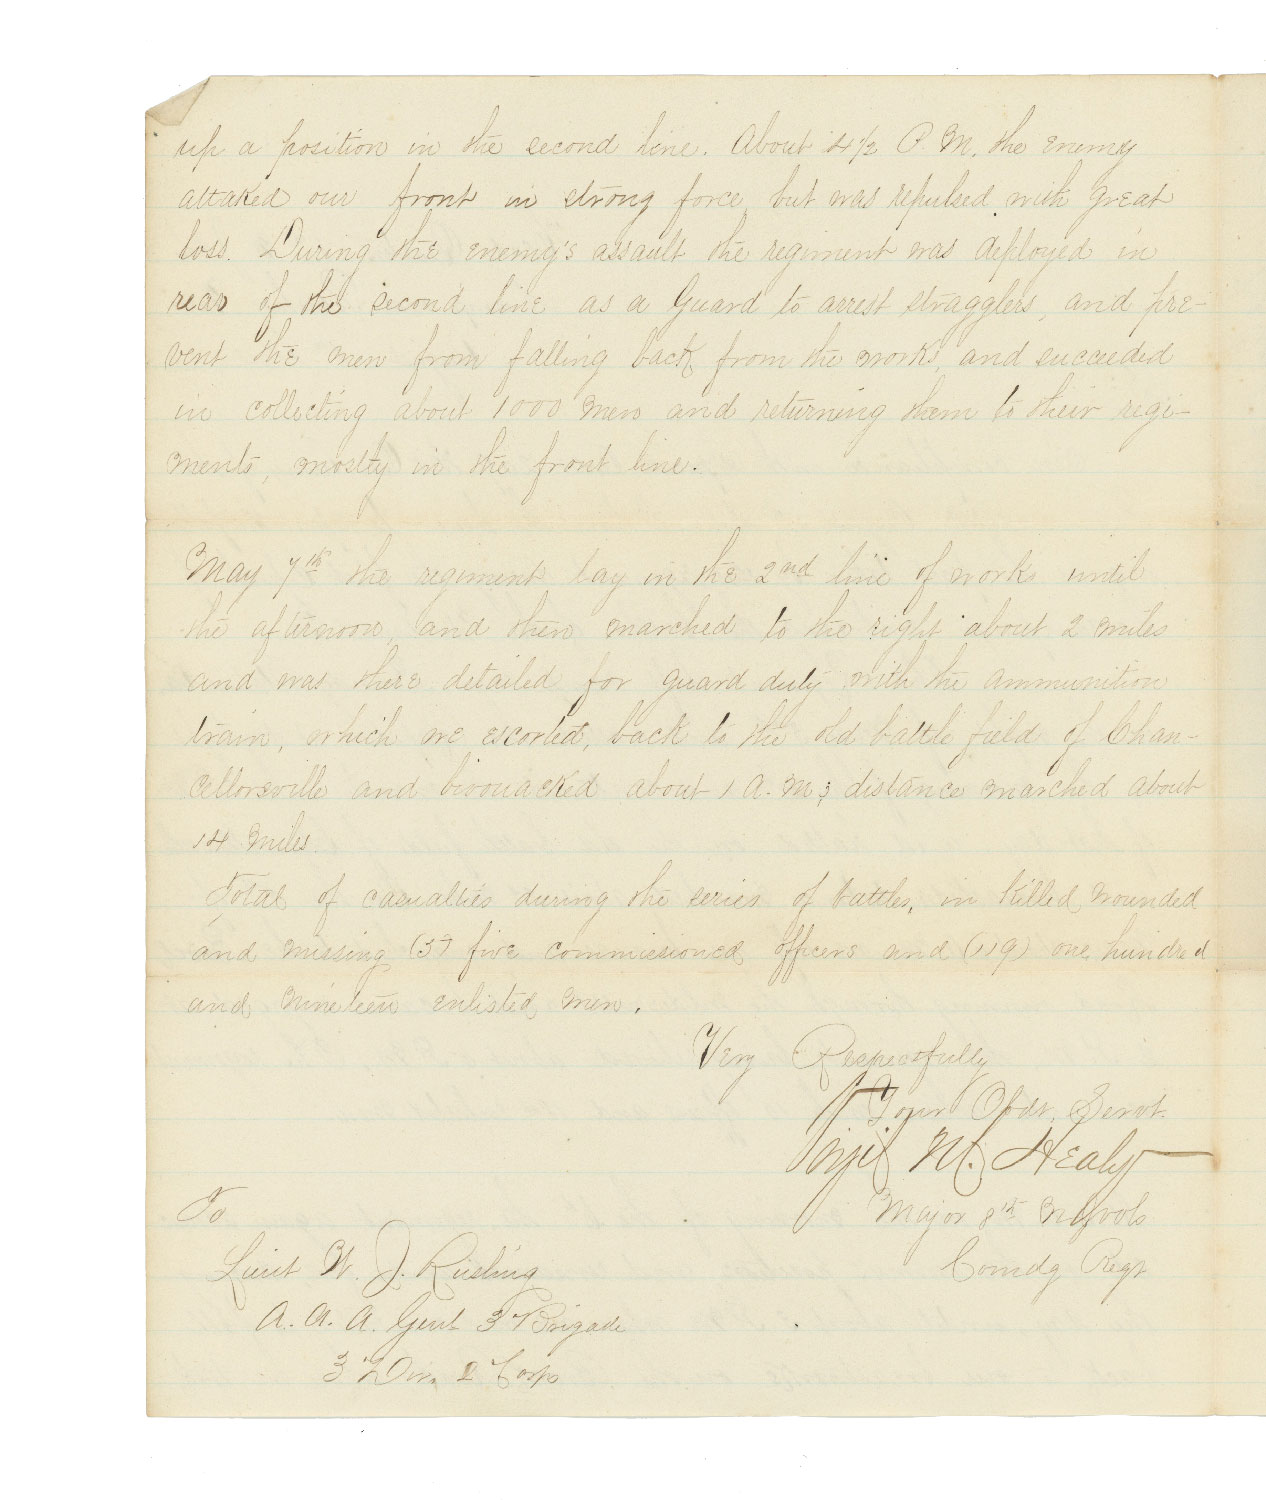 up a position in the second line. About 4½ P. M. the enemy
attaked our front in strong force, but was repulsed with great
loss. During the enemy's assault the regiment was deployed in
rear of the second line as a Guard to arrest stragglers, and pre-
vent the men from falling back from the works, and succeeded
in collecting about 1000 men and returning them to their regi-
ments, mostly in the front line.
May 7th the regiment lay in the 2nd line of works until
the afternoon, and then marched to the right about 2 miles
and was there detailed for guard duty with the ammunition
train, which we escorted, back to the old battle field of Chan-
cellorsville and bivouacked about 1 A. M; distance marched about
14 miles.
Total of casualties during the series of battles, in killed, wounded
and missing (5) five commissioned officers and (119) one hundred
and nineteen enlisted men.
Very Respectfully
Your Obdt. Servt.
Virgil M. Healy
Major 8th N J Vols
Comdg Regt
To
Lieut W. J. Rusling
A. A. A. Genl 3 Brigade
3 Div. 2 Corps